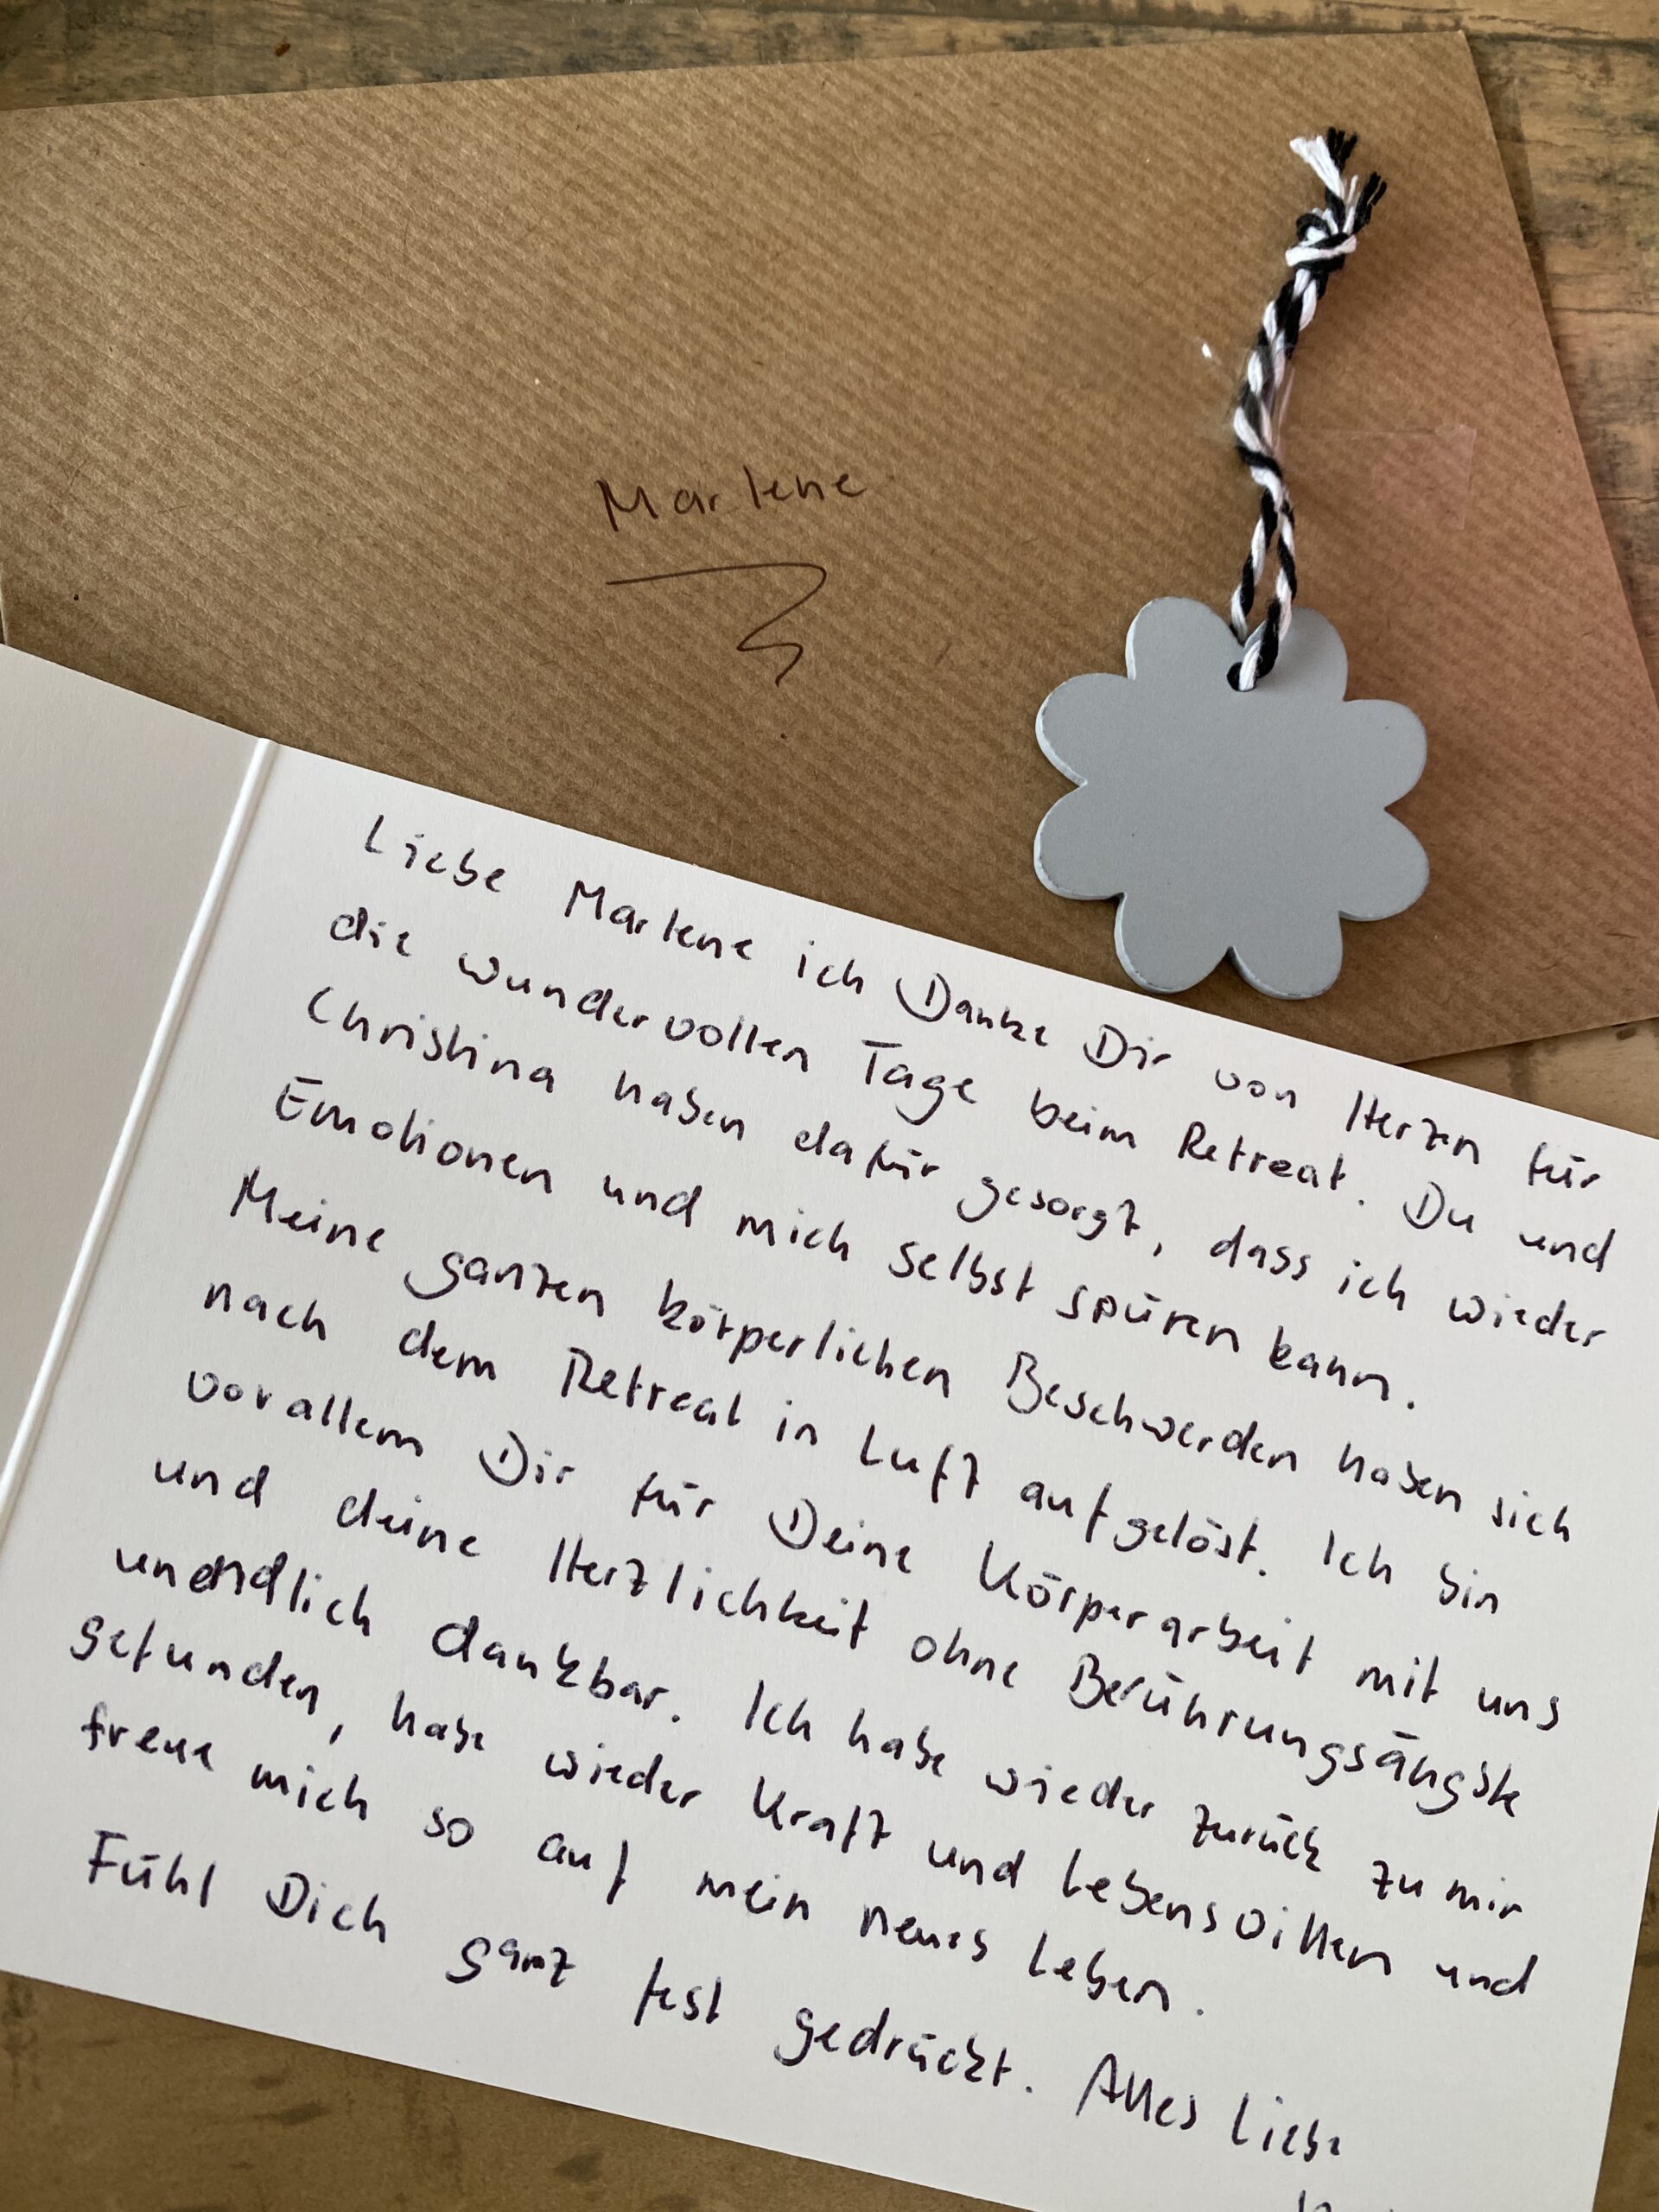 Marlene
Liebe Marlene ich Danke Dir von Herzen für
die wundervollen Tage beim Retreat. Du und
Christina haben dafür gesorgt, dass ich wieder
Emotionen und mich selbst spüren kann.
Meine ganzen körperlichen Beschwerden haben sich
nach dem Retreat in Luft aufgelöst. Ich bin
vorallem Dir für Deine Körperarbeit mit uns
und deine Herzlichkeit ohne Berührungsängste
unendlich dankbar. Ich habe wieder zurück zu mir
gefunden, habe wieder Kraft und Lebenswillen und
freue mich so auf mein neues Leben.
Fühl Dich ganz fest gedrückt. Alles Liebe